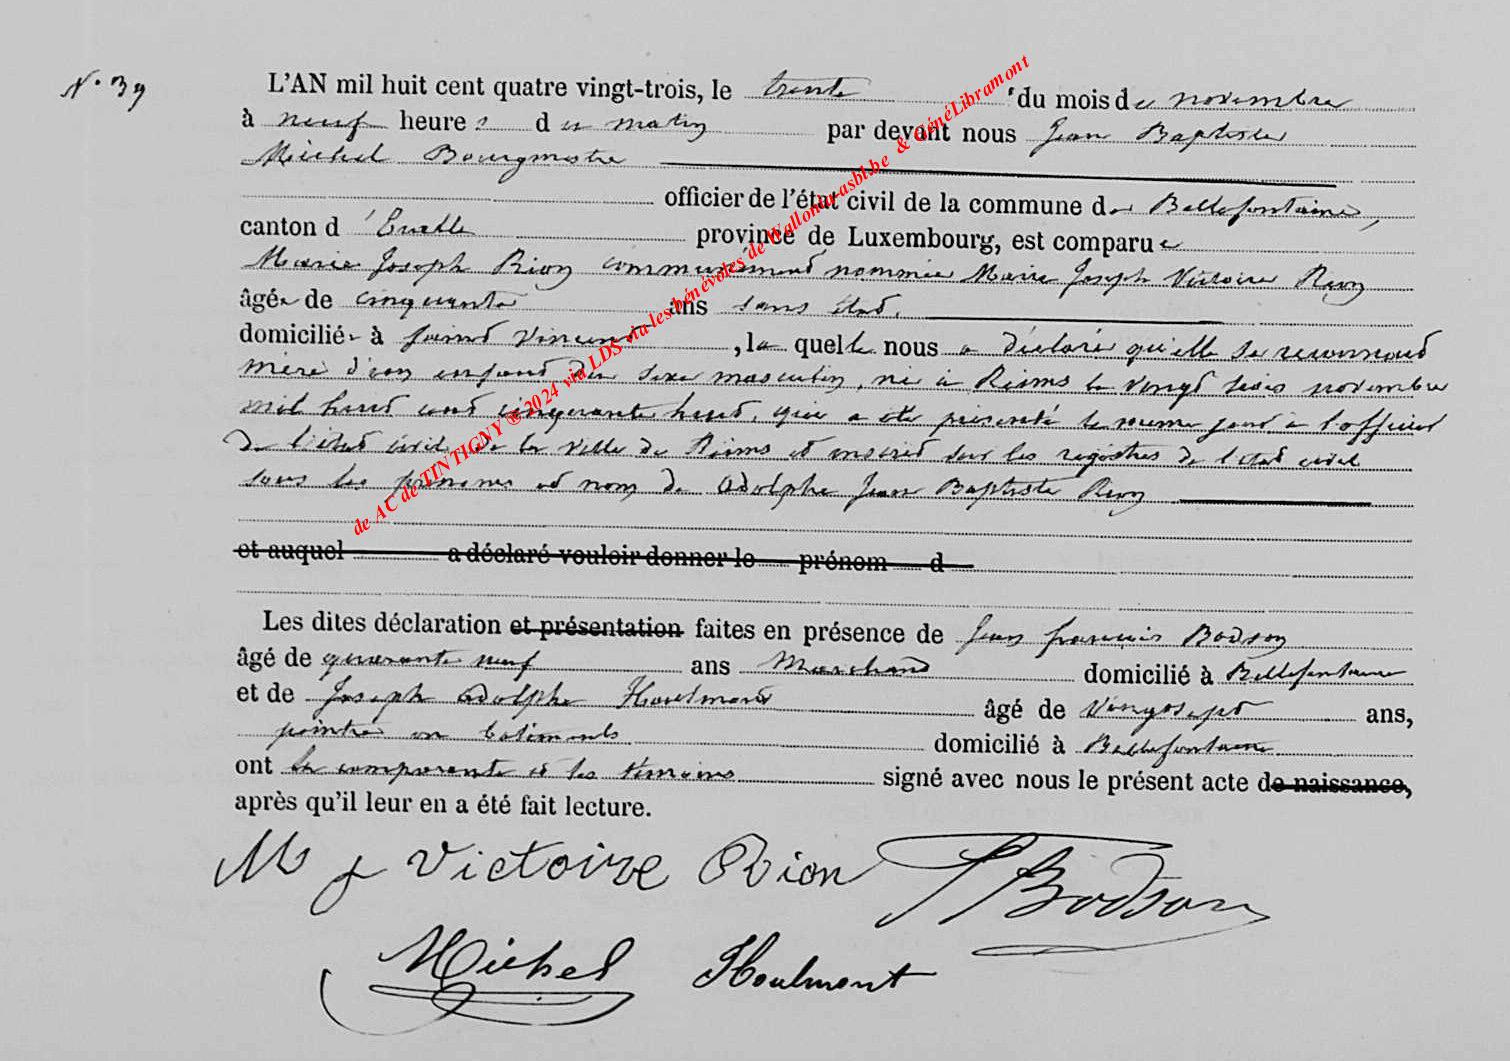 N° 39
L'AN mil huit cent quatre vingt-trois, le trente du mois de novembre
à neuf heures du matin par devant nous Jean Baptiste
Michel Bourgmestre
officier de l'état civil de la commune de Bellefontaine,
canton d'Etalle province de Luxembourg, est comparue
Marie Joseph Rion communément nommée Marie Joseph Victoire Rion
âgée de cinquante ans sans état.
domiciliée à Saint Vincent, laquelle nous a déclaré qu'elle se reconnait
mère d'un enfant du sexe masculin, né à Reims le vingt trois novembre
mil huit cent cinquante huit, qui a été présenté le même jour à l'officier
de l'état civil de la ville de Reims et inscrit sur les registres de l'état civil
sous les prénoms et nom de Adolphe Jean Baptiste Rion
et auquel a déclaré vouloir donner le prénom d
Les dites déclaration et présentation faites en présence de Jean françois Bodson
âgé de quarante neuf ans Marchand domicilié à Bellefontaine
et de Joseph Adolphe Houlmont âgé de vingt sept ans,
peintre en batiments domicilié à Bellefontaine
ont la comparante et les témoins signé avec nous le présent acte de naissance,
après qu'il leur en a été fait lecture.
M J Victoire Rion JBodson
Michel Houlmont
de AC de TINTIGNY ® 2024 via LDS via les bénévoles de Wallonia-asbl.be & GénéLibramont